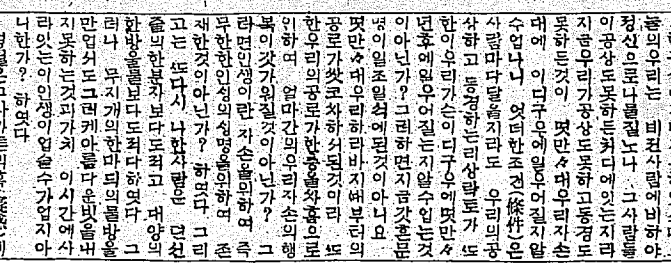 늘의우리는 비컨사람에비하야
정신으로나물질노나 그사람들
이공상도못하든커디에잇는지라
지금우리가공상도못하고동경도
못하든것이 몃만々대우리자손
대에 이디구우에일우어질지알
수업나니 엇더한조건(條件)은
사람마다달을지라도 우리의공
상하고 동경하는리상락토가 또
한이우리가슨이디구우에몃만々
년후에일우어질는지알수입는것
이아닌가? 그러하면지금갓흔문
명이일조일석에된것이아니요
몃만々대우리하라바지때부터의
공로가쌋코싸하서된것이라 또
한우리의공로가한층을차흠으로
인하여 얼마간의우리자손의행
복이갓가워질것이아닌가? 그
라면인생이란 자손을위하여 즉
무한한인성의싱명을위하여 존
재한것이아닌가? 하엿다 그리
고는 또다시 나한사람은 뎐선
줄의한분자보다도적고 대양의
한방울물보다도적다하엿다 그
러나 무지개의한마듸의물방울
만업서도그러케아름다운빗을내
지못하는것과가치 이시간에사
라잇는이인생이업슬수가업지아
니한가? 하엿다